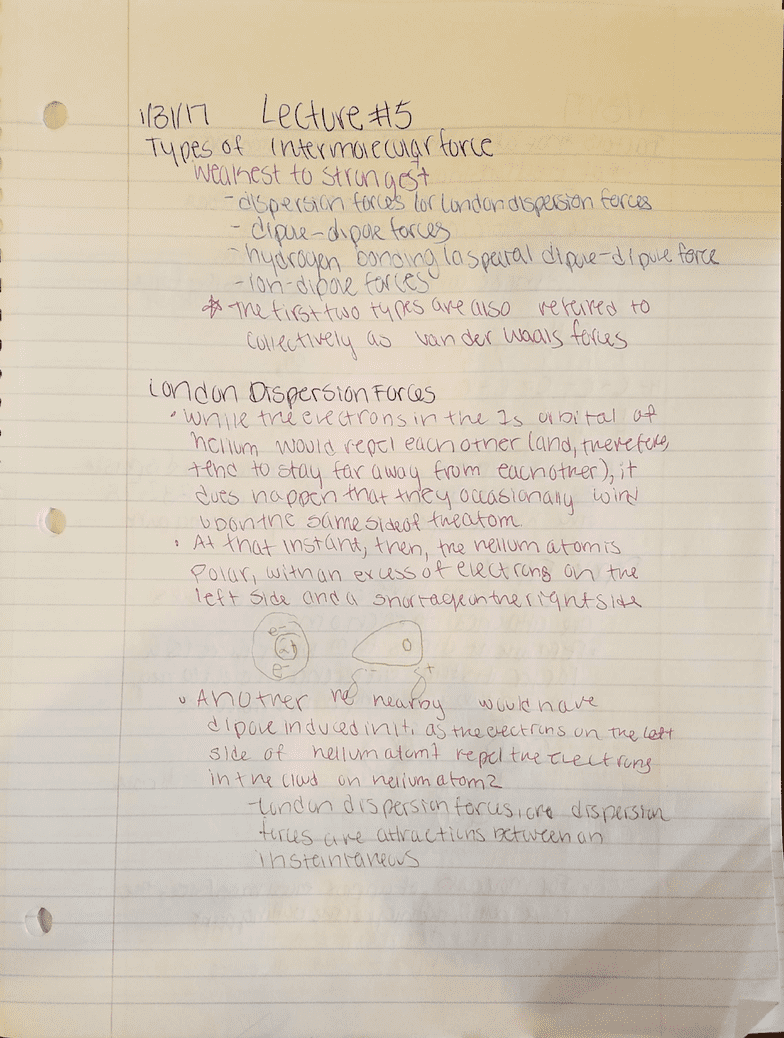 1/31/17 Lecture #5
Types of intermolecular force
weakest to strongest
- dispersion forces (or London dispersion forces
- dipole-dipole forces
- hydrogen bonding (a special dipole-dipole force
- ion-dipole forces
* The first two types are also refered to
collectively as van der Waals forces
London Dispersion Forces
• While the electrons in the 1s orbital of
helium would repel each other (and, therefore,
tend to stay far away from each other), it
does happen that they occasionally wind
up on the same side of the atom
• At that instant, then, the helium atom is
polar, with an excess of electrons on the
left side and a shortage on the right side
e-
2+
e-
- +
• Another He nearby would have
dipole induced in it, as the electrons on the left
side of helium atom 1 repel the electrons
in the cloud on helium atom 2
- London dispersion forces, or dispersion
forces are attractions between an
instantaneous